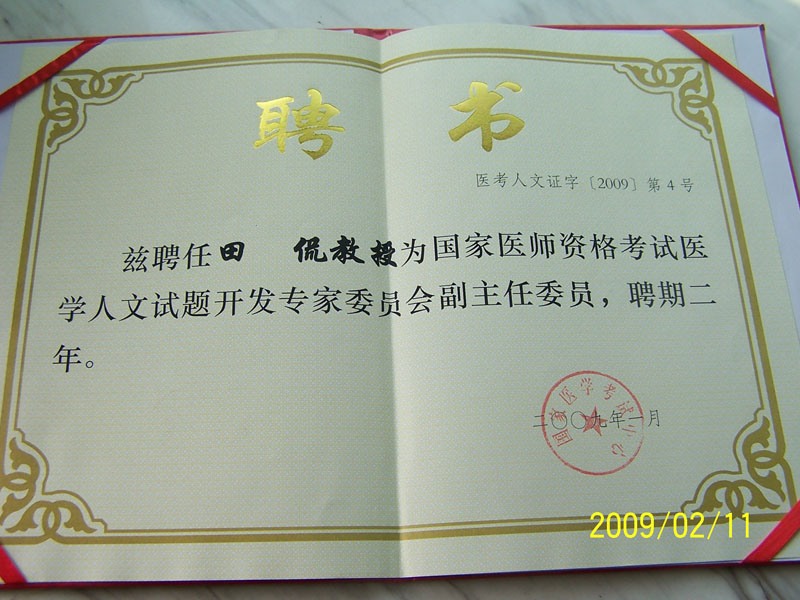 聘 书
医考人文证字〔2009〕第4号
兹聘任田 侃教授为国家医师资格考试医
学人文试题开发专家委员会副主任委员，聘期二
年。
国家医学考试中心
二〇〇九年一月
2009/02/11